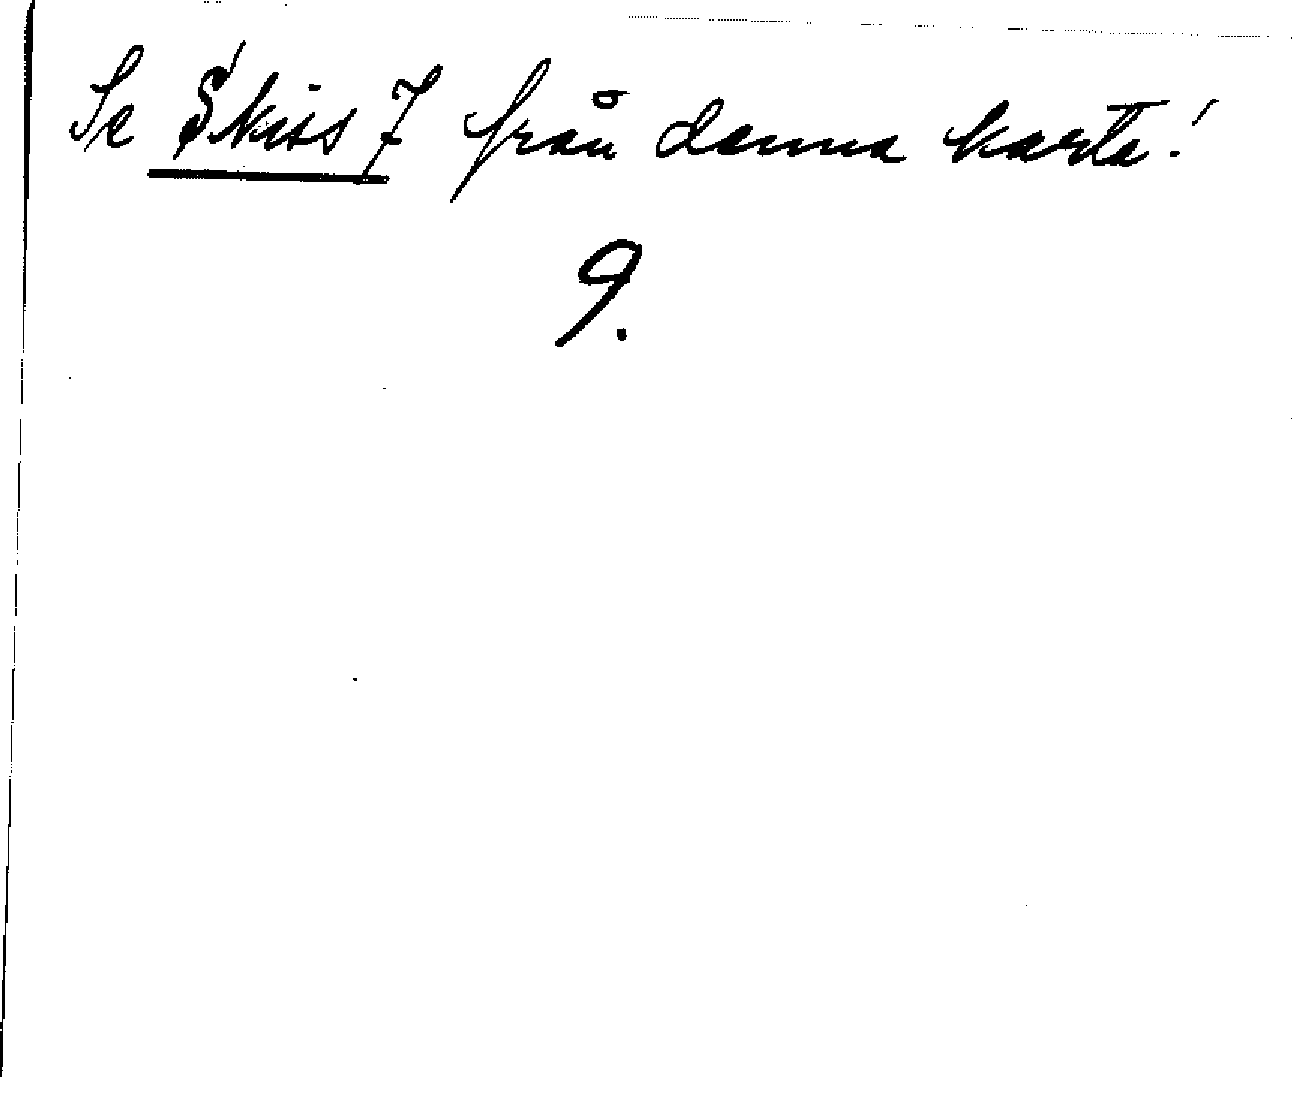 Se Skiss 7 från denna karta!
9.